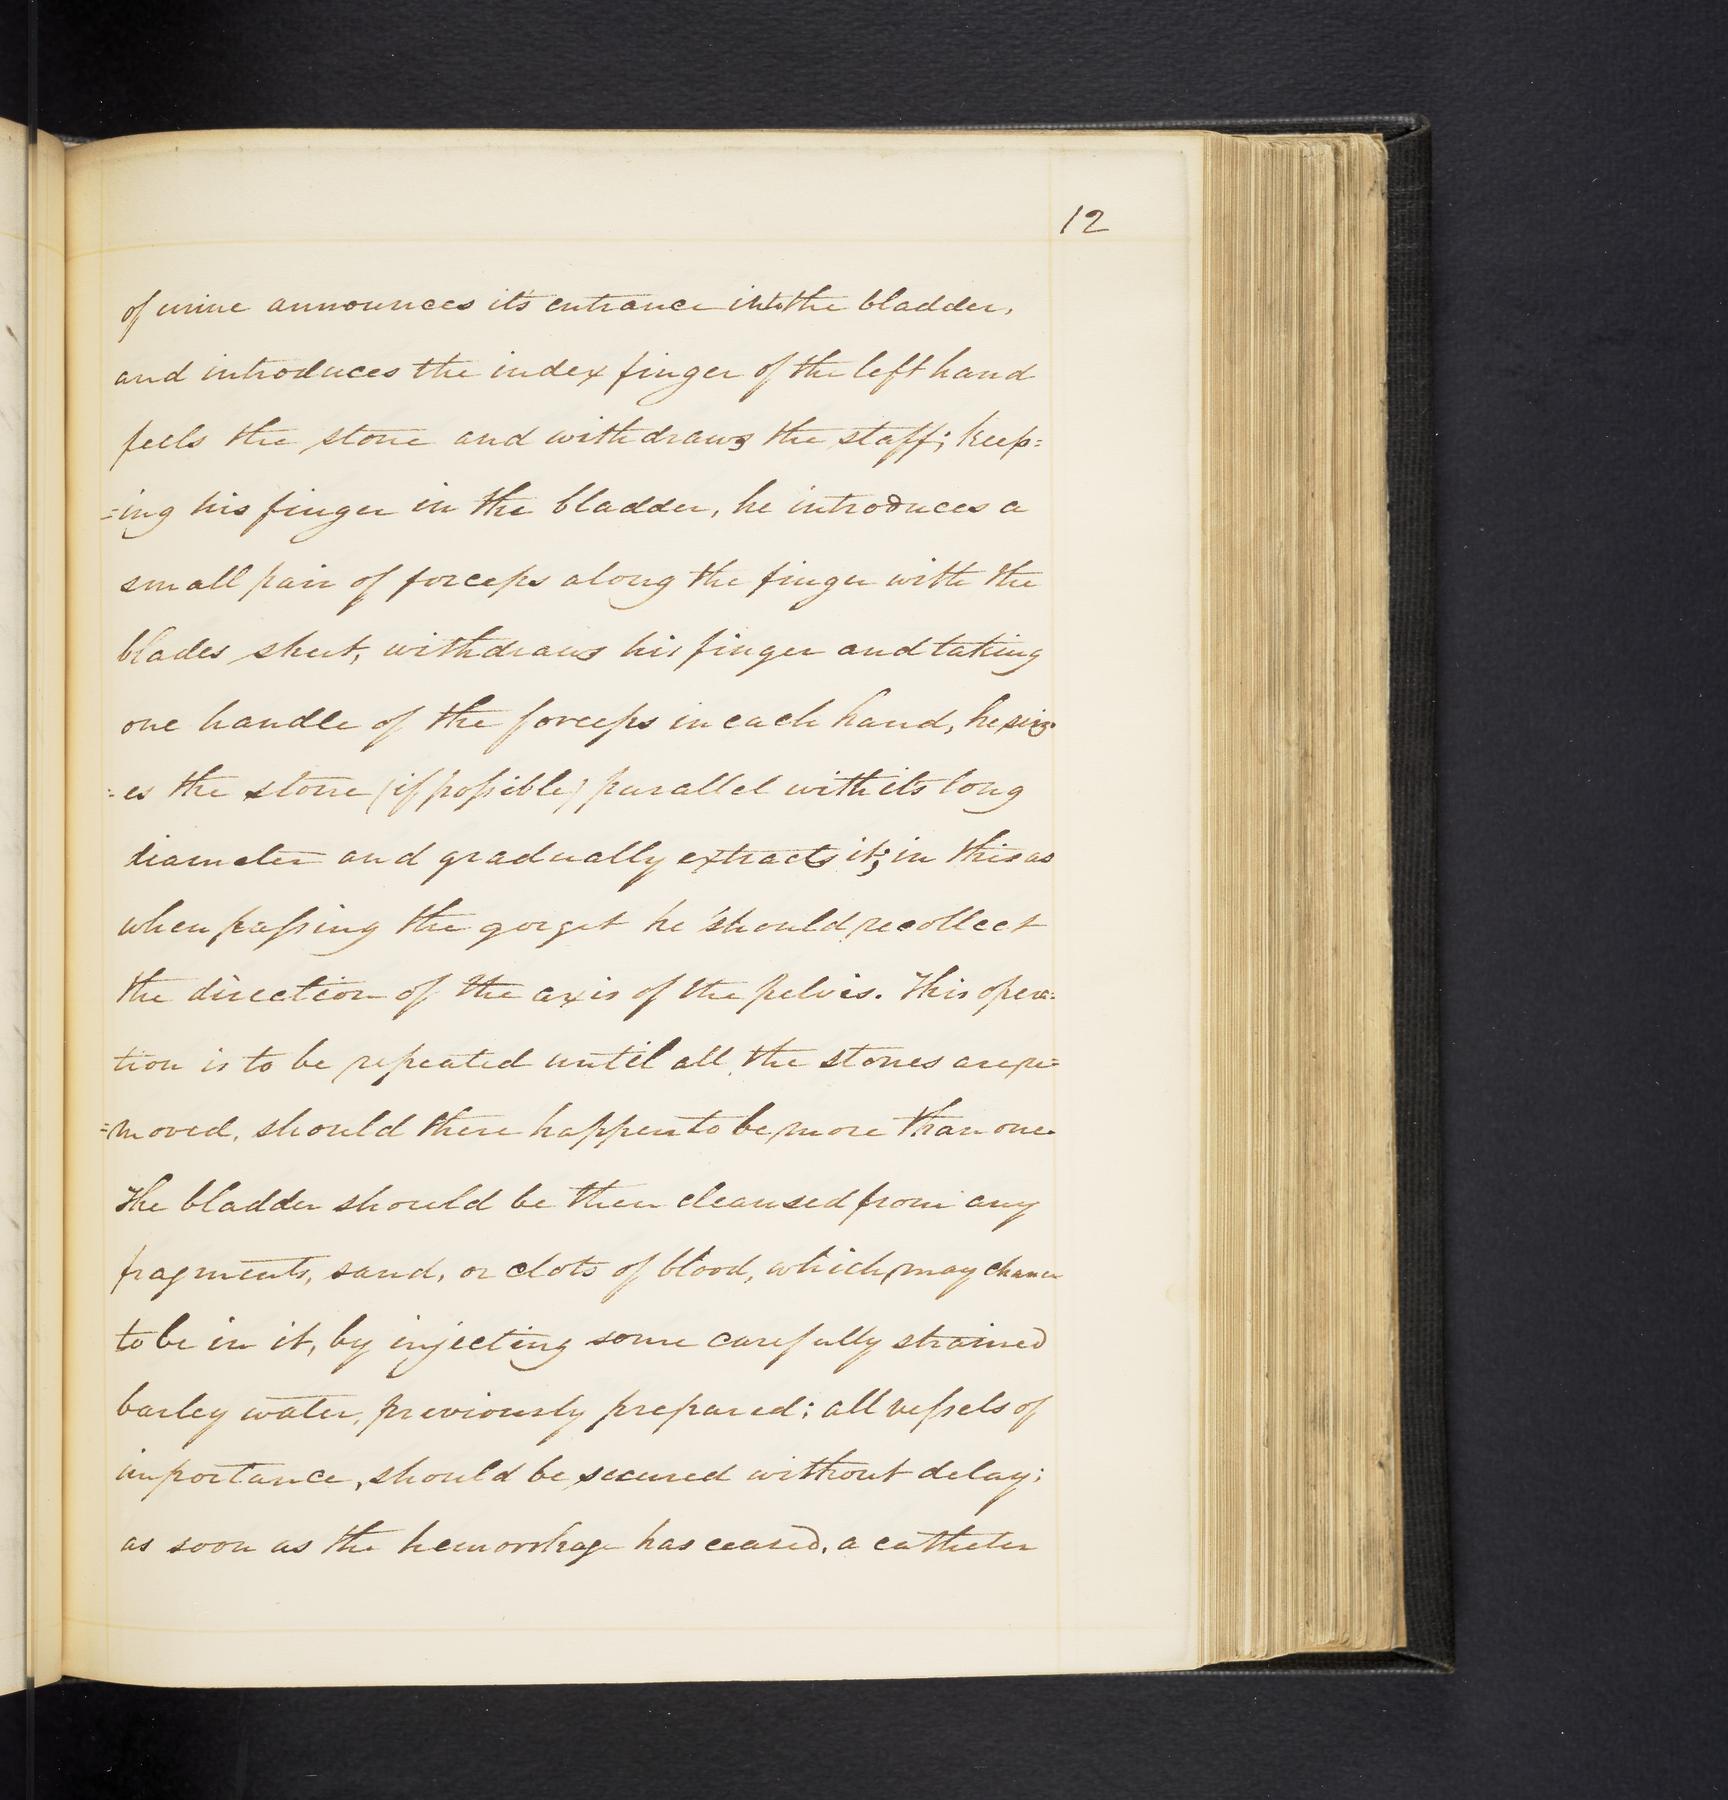 12
of urine announces it's entrance into the bladder,
and introduces the index finger of the left hand
feels the stone and withdraws the staff; keep=
=ing his finger in the bladder, he introduces a
small pair of forceps along the finger with the
blades shut, withdraws his finger and taking
one handle of the forceps in each hand, he siez=
=es the stone (if possible) parallel with its long
diameter and gradually extracts it; in this as
when passing the gorget he should recollect
the direction of the axis of the pelvis. This opera=
tion is to be repeated until all the stones are re=
=moved, should there happen to be more than one.
The bladder should be then cleansed from any
fragments, sand, or clots of blood, which may chance
to be in it, by injecting some carefully strained
barley water, previously prepared; all vessels of
importance, should be secured without delay;
as soon as the hemorrhage has ceased, a catheter